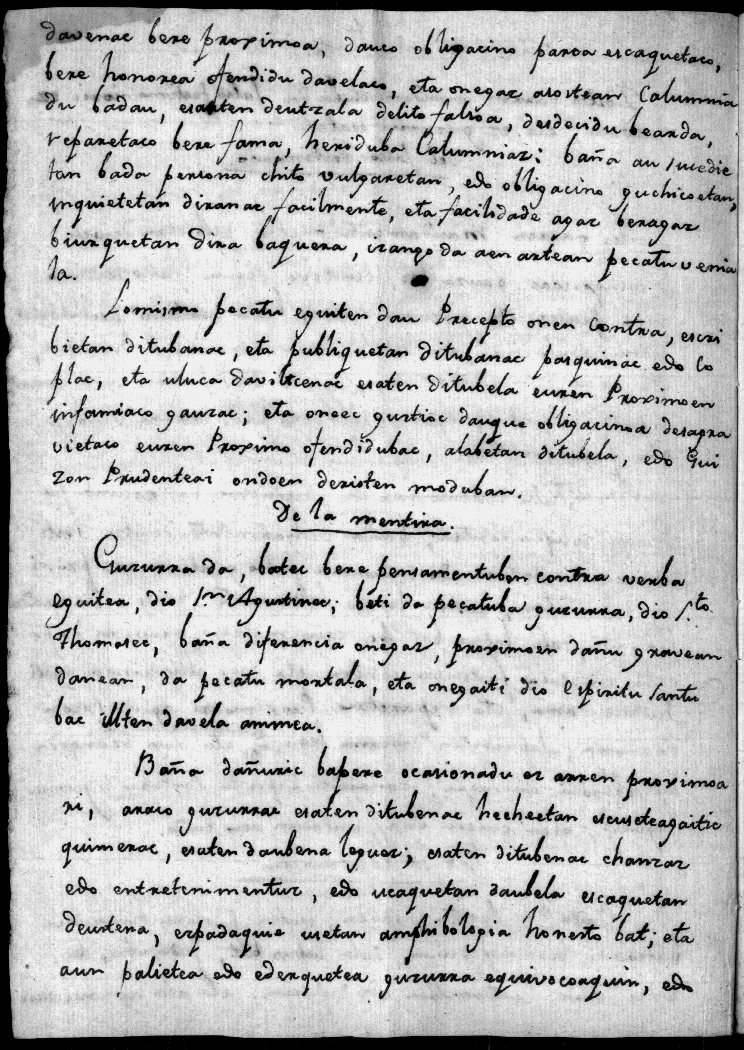 davenac bere proximoa, dauco obligacino parca escaquetaco,
bere honorea ofendidu davelaco, eta onegaz asostean Calumnia
du badau, esaten deutzala delito falsoa, desdecidu bearda,
reparetaco bere fama, heriduba Calumniaz: baña au sucedie
tan bada persona chito vulgaretan, edo obligacino guchicoetan,
inquietetan diranac facilmente, eta facilidade agaz beragaz
biurquetan dira baquera, izango da aen artean pecatu venia
la.
Lomismo pecatu eguiten dau Precepto onen contra, escri
bietan ditubanac, eta publiquetan ditubanac pasquinac edo Co
plac, eta uluca daviltcenac esaten ditubela euren Proximoen
infamiaco gauzac; eta oneec guztioc daugue obligacinoa desagra
vietaco euren Proximo ofendidubac, alabetan ditubela, edo Gui
zon Prudenteai ondoen deristen moduban.
De la mentira.
Guzurra da, batec bere pensamentuben contra verba
eguitea, dio Sn. Agustinec; beti da pecatuba guzurra, dio Sto.
Thomasec, baña diferencia onegaz, proximoen dañu gravean
danean, da pecatu mortala, eta onegaiti dio Espiritu Santu
bac illten davela animea.
Baña dañuric bapere ocasionadu ez arren proximoa
ri, arrco guzurrac esaten ditubenac hecheetan escuseteagaitic
quimerac, esaten daubena leguez; esaten ditubenac chanzaz
edo entretenimentuz, edo ucaquetan daubela escaquetan
deustena, ezpadaquie usetan amphibologia honesto bat; eta
aun palietea edo ederquetea guzurra equivocoaquin, edo